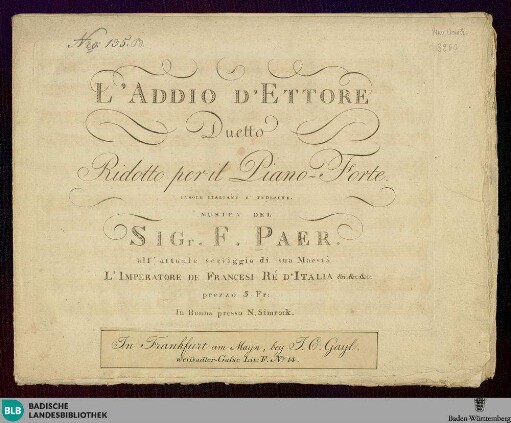 Nro 135.
L'ADDIO D'ETTORE
Duetto
Ridotto per il Piano-Forte.
PAROLE ITALIANE E TEDESCHE.
MUSICA DEL
SIGr. F. PAER.
all' attuale servaggio di sua Maestà
L'IMPERATORE DE FRANCESI RÉ D'ITALIA &c. &c. &c.
prezzo 3 Fr:
In Bonna presso N. Simrock.
In Frankfurt am Mayn, bey J. C. Gayl.
Lit: F. No 14.
BLB BADISCHE
LANDESBIBLIOTHEK
Baden-Württemberg